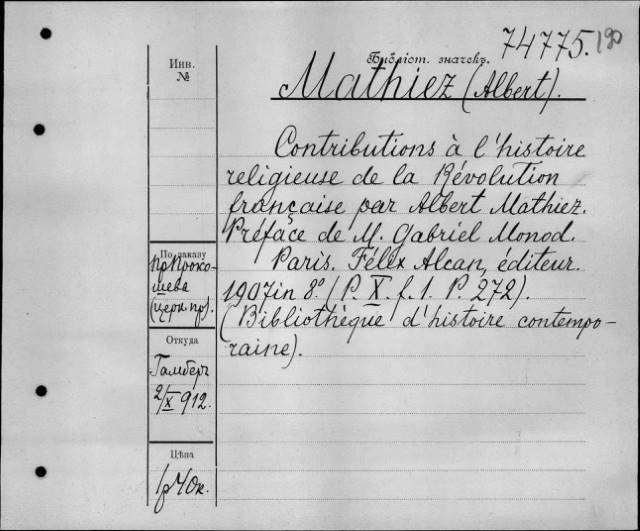 74775.
Инв.
№
Библіот. значекъ.
Mathiez (Albert).
Contributions à l'histoire
religieuse de la Révolution
française par Albert Mathiez.
Préface de M. Gabriel Monod.
Paris. Félix Alcan, éditeur.
1907 in 8º. (P. X. f. 1. P. 272).
(Bibliothèque d'histoire contempo-
raine).
По заказу
пр Проко-
шева
(церк. пр).
Откуда
Гамберъ
2/X 912.
Цѣна
1р 40к.